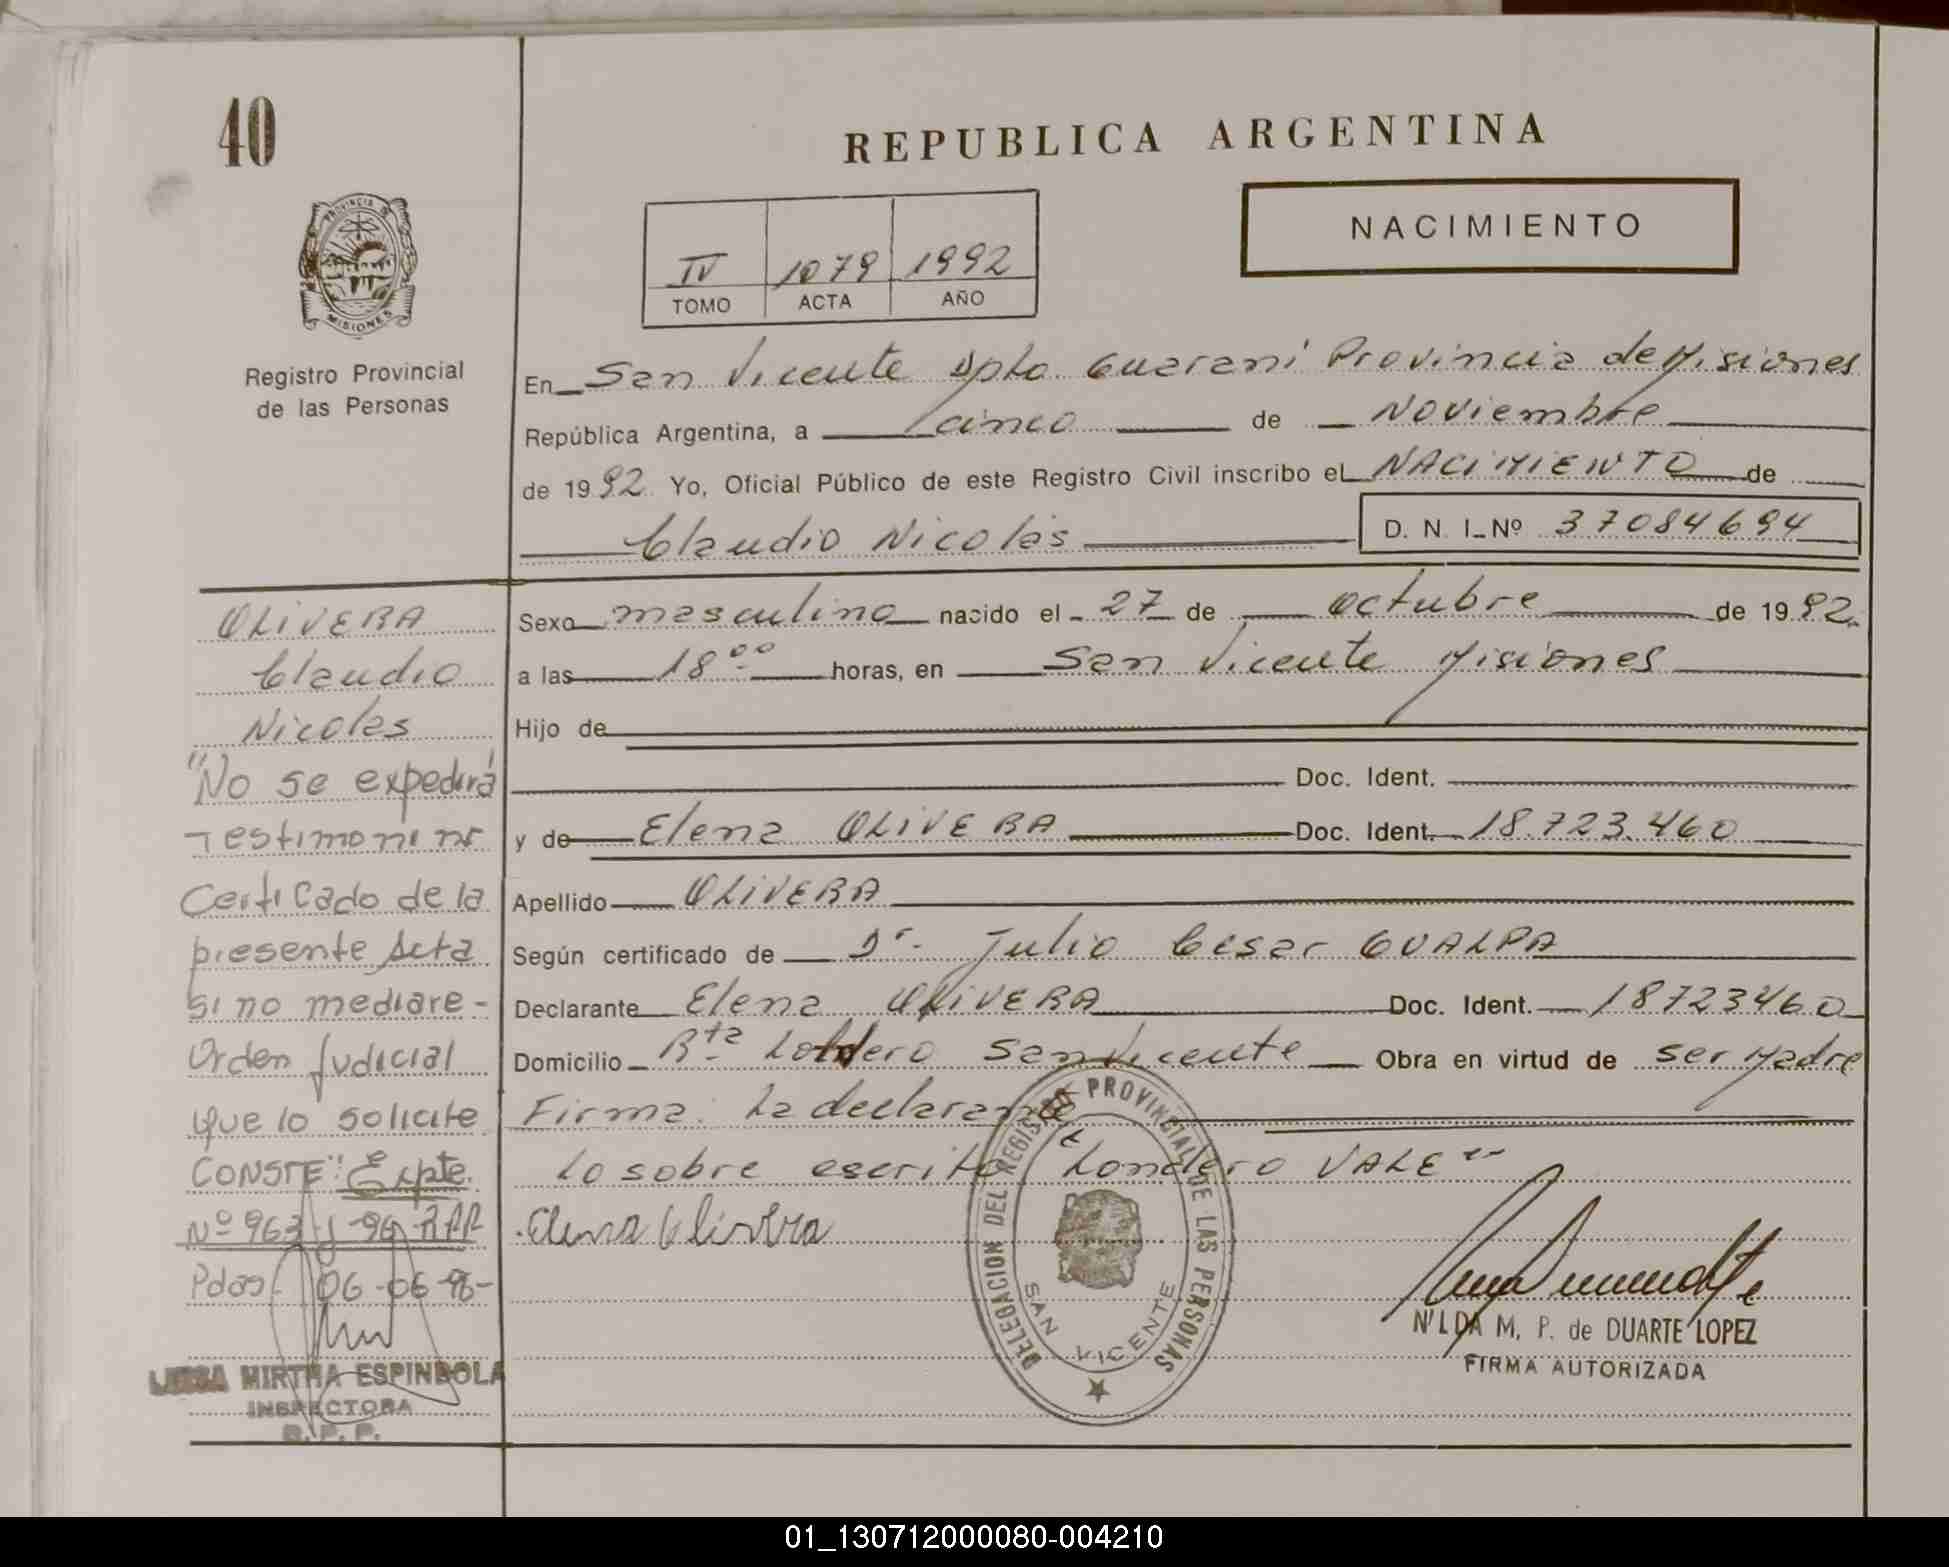 40
REPUBLICA ARGENTINA
NACIMIENTO
IV 1079 1992
TOMO ACTA AÑO
PROVINCIA DE
MISIONES
Registro Provincial
de las Personas
En San Vicente Dpto Guaraní Provincia de Misiones
República Argentina, a cinco de Noviembre
de 1992 Yo, Oficial Público de este Registro Civil inscribo el NACIMIENTO de
Claudio Nicolás D. N. I. Nº 37084694
OLIVERA
Claudio
Nicolas
"No se expedirá
Testimoni ni
Certificado de la
presente Acta
si no mediare-
Orden Judicial
que lo solicite
CONSTE": Expte.
Nº 963-J-96-RPP
Pdas. 06-06-96-
LUISA MIRTHA ESPINDOLA
INSPECTORA
R. P. P.
Sexo masculino nacido el 27 de octubre de 1992
a las 18 00 horas, en San Vicente Misiones
Hijo de
Doc. Ident.
y de Elena OLIVERA Doc. Ident. 18.723.460
Apellido OLIVERA
Según certificado de Dr. Julio Cesar GUALPA
Declarante Elena OLIVERA Doc. Ident. 18723460
Domicilio Rta Londero San Vicente Obra en virtud de ser Madre
Firma: La declarante
Lo sobre escrito "Londero VALE"
Elena Olivera
DELEGACION DEL REGISTRO PROVINCIAL DE LAS PERSONAS
SAN VICENTE
NILDA M. P. de DUARTE LOPEZ
FIRMA AUTORIZADA
01_130712000080-004210